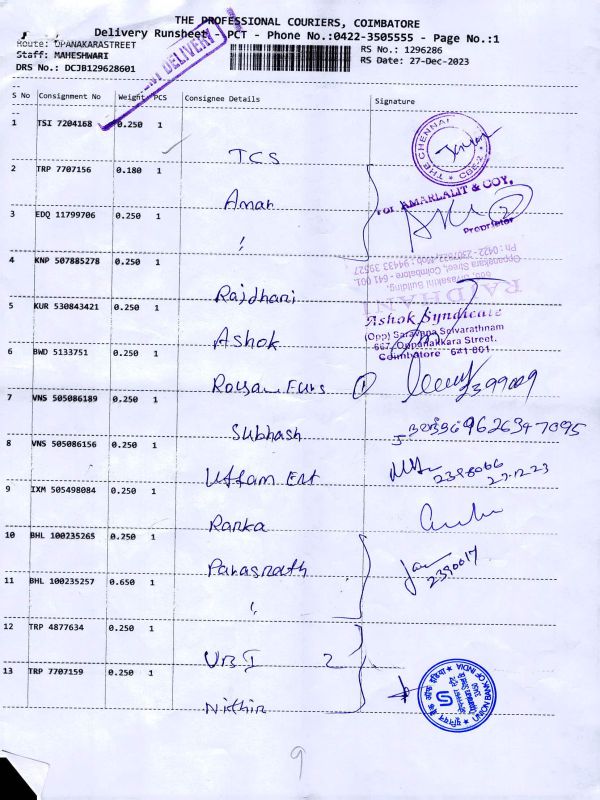 THE PROFESSIONAL COURIERS, COIMBATORE
Delivery Runsheet - PCT - Phone No.:0422-3505555 - Page No.:1
Route: OPANAKARASTREET
RS No.: 1296286
Staff: MAHESHWARI
RS Date: 27-Dec-2023
DRS No.: DCJB129628601
DELIVERY
S No Consignment No Weight PCS Consignee Details Signature
1 TSI 7204168 0.250 1 TCS
THE CHENNAI CBE-2
2 TRP 7707156 0.180 1 Aman
For AMARLALIT & COY,
Proprietor
3 EDQ 11799706 0.250 1 "
4 KNP 507885278 0.250 1 Rajdhani
RAJDHANI
Oppanakara Street, Coimbatore - 641 001.
Ph : 0422 - 2307822 Mob : 94433 39527
5 KUR 530843421 0.250 1 Ashok
Ashok Syndicate
(Opp) Saravana Selvarathnam
667, Oppanakkara Street.
Coimbatore 641 001
6 BWD 5133751 0.250 1 1 2399009
7 VNS 505086189 0.250 1 Subhash 9626347095
8 VNS 505086156 0.250 1 Uttam Ent 2398066
27.12.23
9 IXM 505498084 0.250 1 Ranka
10 BHL 100235265 0.250 1 Parasnath 2390017
11 BHL 100235257 0.650 1 "
12 TRP 4877634 0.250 1 UBI 2
13 TRP 7707159 0.250 1 Nithin
UNION BANK OF INDIA
9